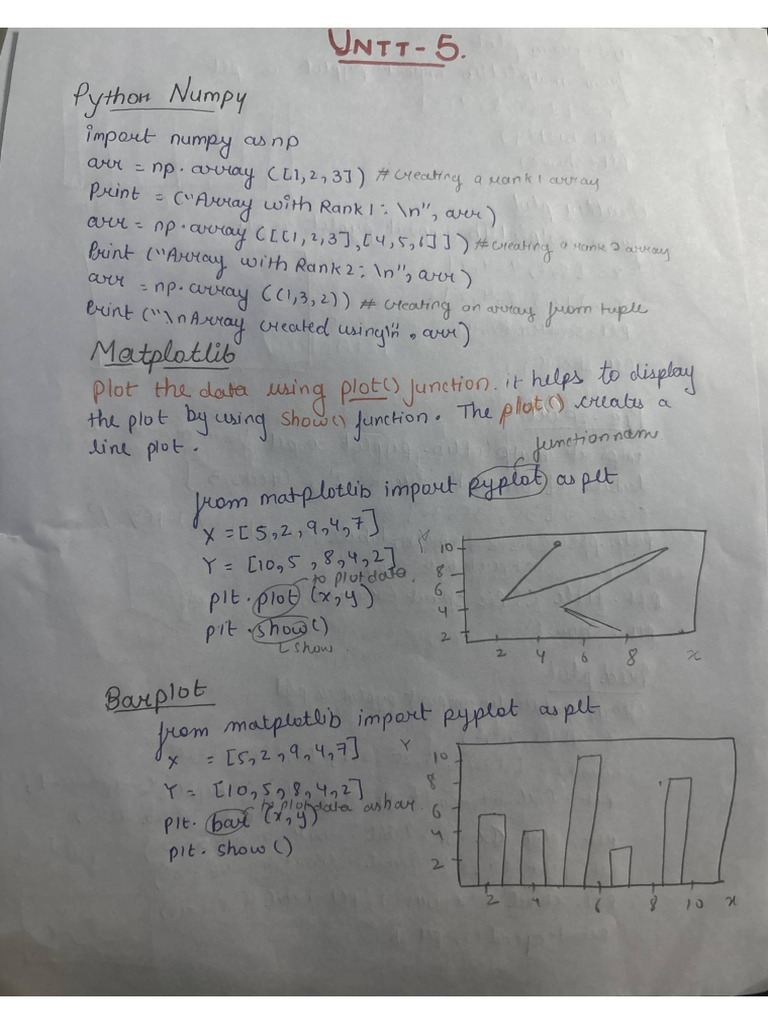 UNIT-5.
Python Numpy
import numpy as np
arr = np.array ([1,2,3]) # creating a rank 1 array
Print = ("Array with Rank 1: \n", arr)
arr = np.array ([[1,2,3],[4,5,6]]) # creating a rank 2 array
Print ("Array with Rank 2: \n", arr)
arr = np.array ((1,3,2)) # creating an array from tuple
Print ("\nArray created using\n", arr)
Matplotlib
plot the data using plot() function. it helps to display
the plot by using show() function. The plot() creates a
line plot.
function nam
from matplotlib import pyplot as plt
X = [5,2,9,4,7]
Y = [10,5,8,4,2]
to plot data.
plt.plot (x,y)
plt.show()
show.
Y
10
8
6
4
2
2 4 6 8 x
Barplot
from matplotlib import pyplot as plt
X = [5,2,9,4,7]
Y = [10,5,8,4,2]
to plot data as bar.
plt.bar (x,y)
plt.show()
Y
10
8
6
4
2
2 4 6 8 10 x